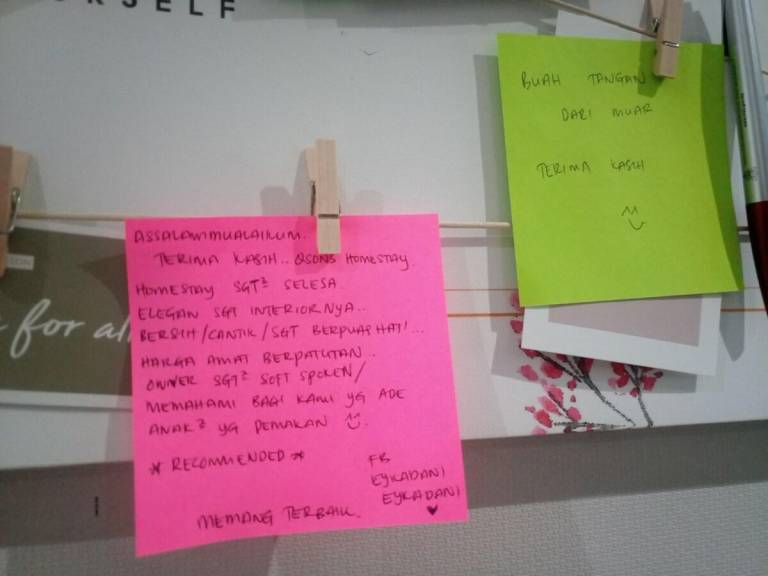 RSELF
BUAH TANGAN
DARI MUAR
TERIMA KASIH
for all
ASSALAMMUALAIKUM.
TERIMA KASIH.. QSONS HOMESTAY.
HOMESTAY SGT² SELESA.
ELEGAN SGT INTERIORNYA..
BERSIH/CANTIK/SGT BERPUAS HATI...
HARGA AMAT BERPATUTAN..
OWNER SGT² SOFT SPOKEN/
MEMAHAMI BAGI KAMI YG ADE
ANAK² YG PEMAKAN
* RECOMMENDED *
FB
EYKADANI
EYKADANI
MEMANG TERBAIK.